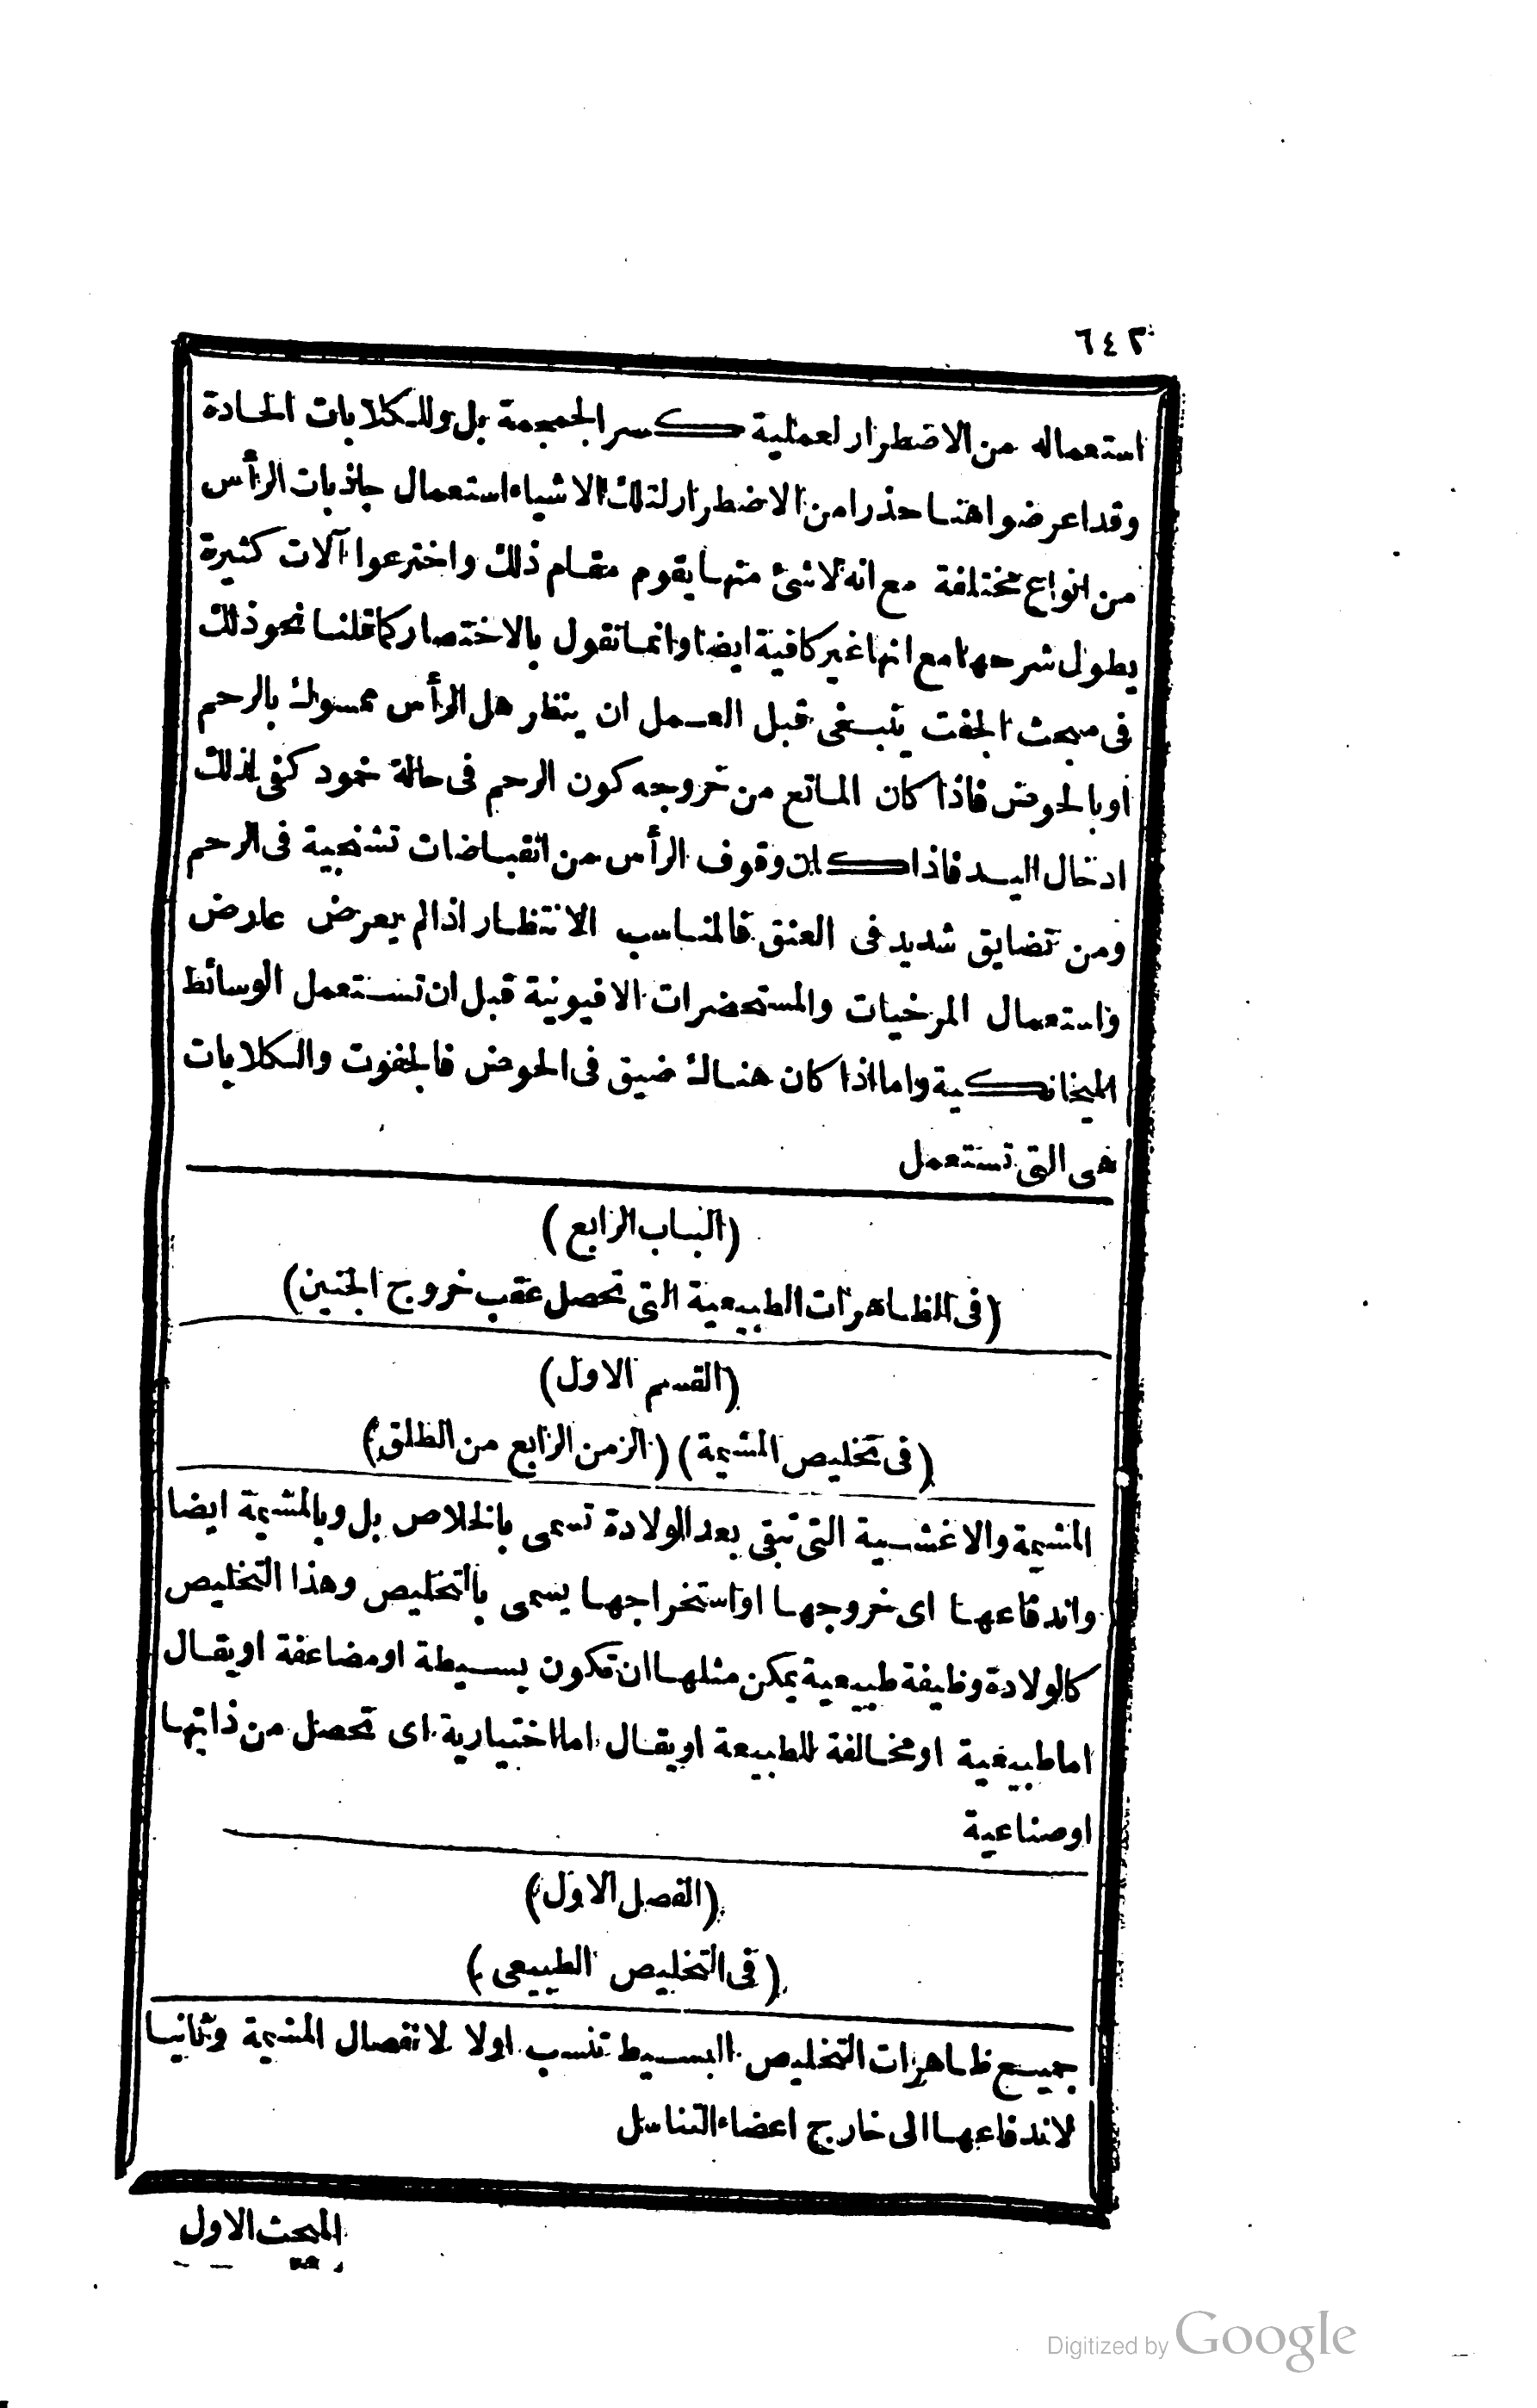 ٦٤٢
استعماله من الاضطرار لعملية كسر الجمجمة بل وللكلابات الحادة
وقد اعرضوا هنا حذرا من الاضطرار لتلك الاشياء استعمال جاذبات الرأس
من انواع مختلفة مع انه لا شئ منها يقوم مقام ذلك واخترعوا آلات كثيرة
يطول شرحها مع انها غير كافية ايضا وانما نقول بالاختصار كما قلنا نحو ذلك
فى مبحث الجفت ينبغى قبل العمل ان ينظر هل الرأس ممسوك بالرحم
او بالحوض فاذا كان المانع من خروجه كون الرحم فى حالة خمود كفى لذلك
ادخال اليد فاذا كان وقوف الرأس من انقباضات تشنجية فى الرحم
ومن تضايق شديد فى العنق فالمناسب الانتظار اذا لم يعرض عارض
واستعمال المرخيات والمستحضرات الافيونية قبل ان تستعمل الوسائط
الميخانكية واما اذا كان هناك ضيق فى الحوض فالجفوت والكلابات
هى التى تستعمل
(الباب الرابع)
(فى الظاهرات الطبيعية التى تحصل عقب خروج الجنين)
(القسم الاول)
(فى تخليص المشيمة) (الزمن الرابع من الطلق)
المشيمة والاغشية التى تبقى بعد الولادة تسمى بالخلاص بل وبالمشيمة ايضا
واندفاعها اى خروجها او استخراجها يسمى بالتخليص وهذا التخليص
كالولادة وظيفة طبيعية يمكن مثلها ان تكون بسيطة او مضاعفة او يقال
اما طبيعية او مخالفة للطبيعة او يقال اما اختيارية اى تحصل من ذاتها
او صناعية
(الفصل الاول)
(فى التخليص الطبيعى)
جميع ظاهرات التخليص البسيط تنسب اولا لانفصال المشيمة وثانيا
لاندفاعها الى خارج اعضاء التناسل
المبحث الاول
Digitized by Google